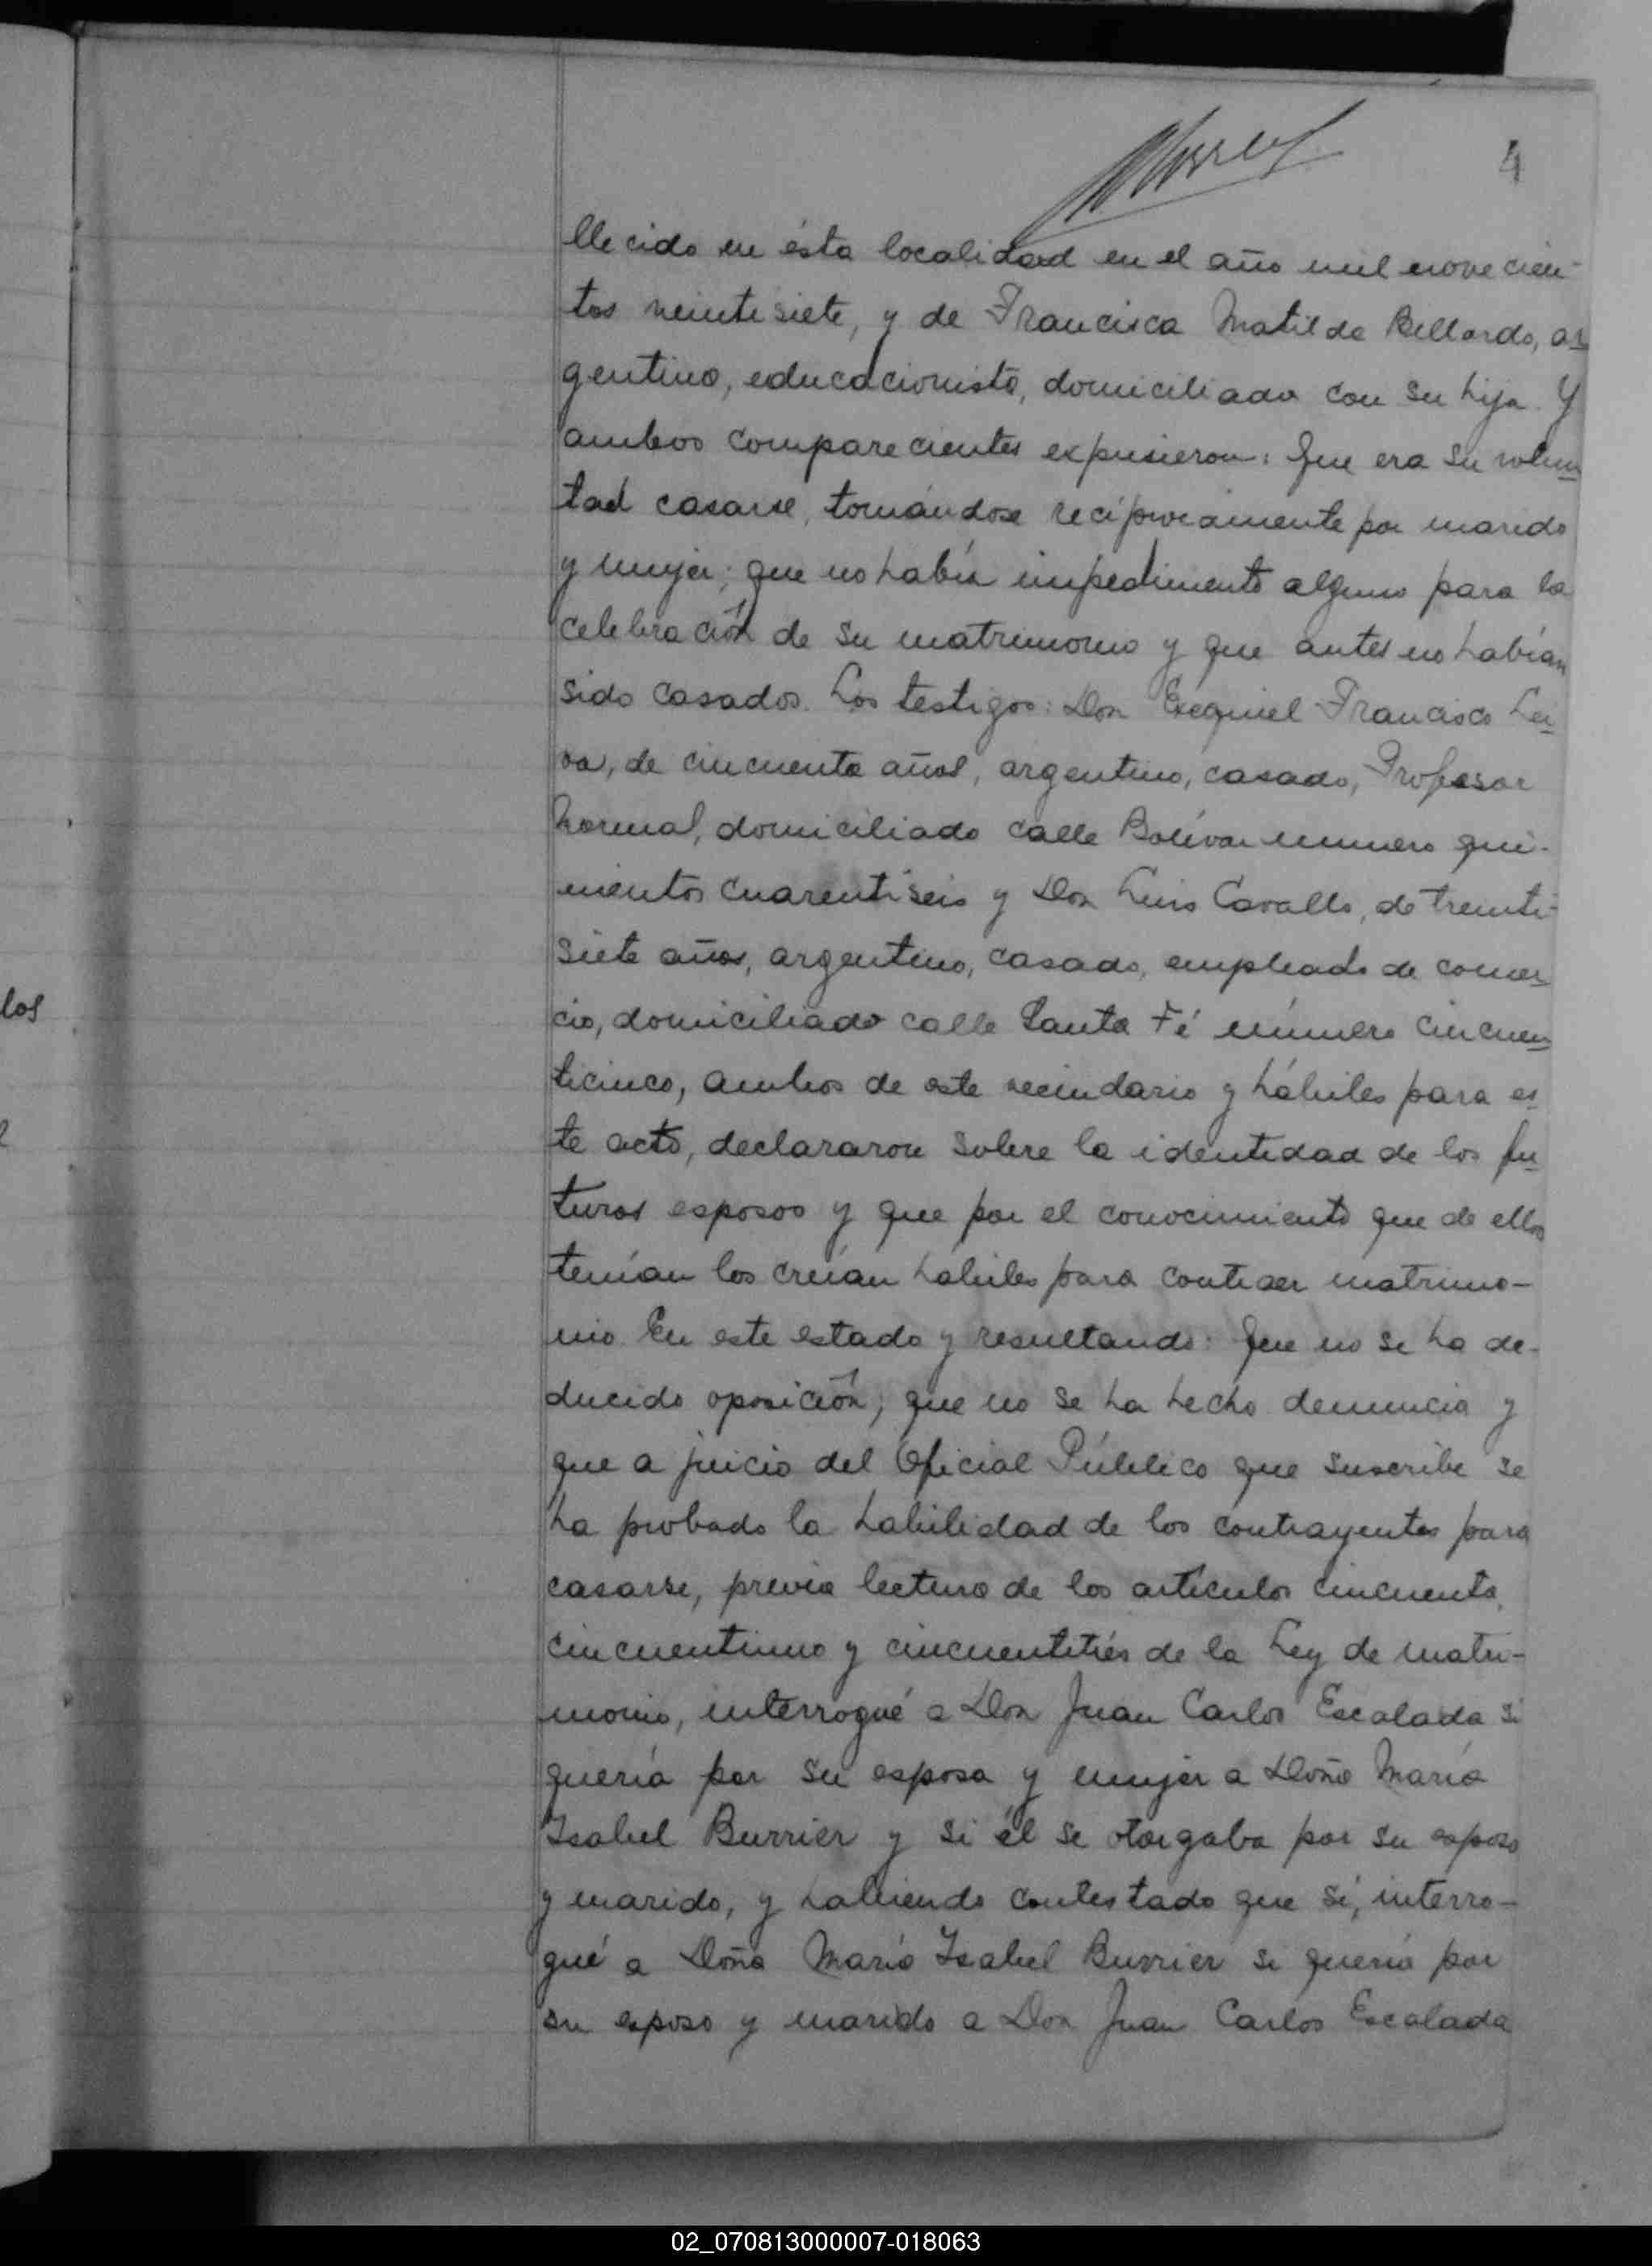 4
llecido en ésta localidad en el año mil novecien-
tos veintisiete, y de Francisca Matilde Bellardo, ar
gentina, educacionista, domiciliada con su hija. Y
ambos comparecientes expusieron: Que era su volun
tad casarse, tomándose recíprocamente por marido
y mujer; que no había impedimento alguno para la
celebración de su matrimonio y que antes no habían
sido casados. Los testigos: Don Exequiel Francisco Lei
va, de cincuenta años, argentino, casado, Profesor
Normal, domiciliado calle Bolívar número qui-
nientos cuarentiseis y Don Luis Cavallo, de treinti-
siete años, argentino, casado, empleado de comer
cio, domiciliado calle Santa Fé número cincuen
ticinco, ambos de este vecindario y hábiles para es
te acto, declararon sobre la identidad de los fu
turos esposos y que por el conocimiento que de ellos
tenían los creían hábiles para contraer matrimo-
nio. En este estado y resultando: Que no se ha de-
ducido oposición; que no se ha hecho denuncia y
que a juicio del Oficial Público que suscribe se
ha probado la habilidad de los contrayentes para
casarse, previa lectura de los artículos cincuenta,
cincuentiuno y cincuentitrés de la Ley de matri-
monio, interrogué a Don Juan Carlos Escalada si
quería por su esposa y mujer a Doña María
Isabel Burrier y si él se otorgaba por su esposo
y marido, y habiendo contestado que sí, interro-
gué a Doña María Isabel Burrier si quería por
su esposo y marido a Don Juan Carlos Escalada
los
02_070813000007-018063